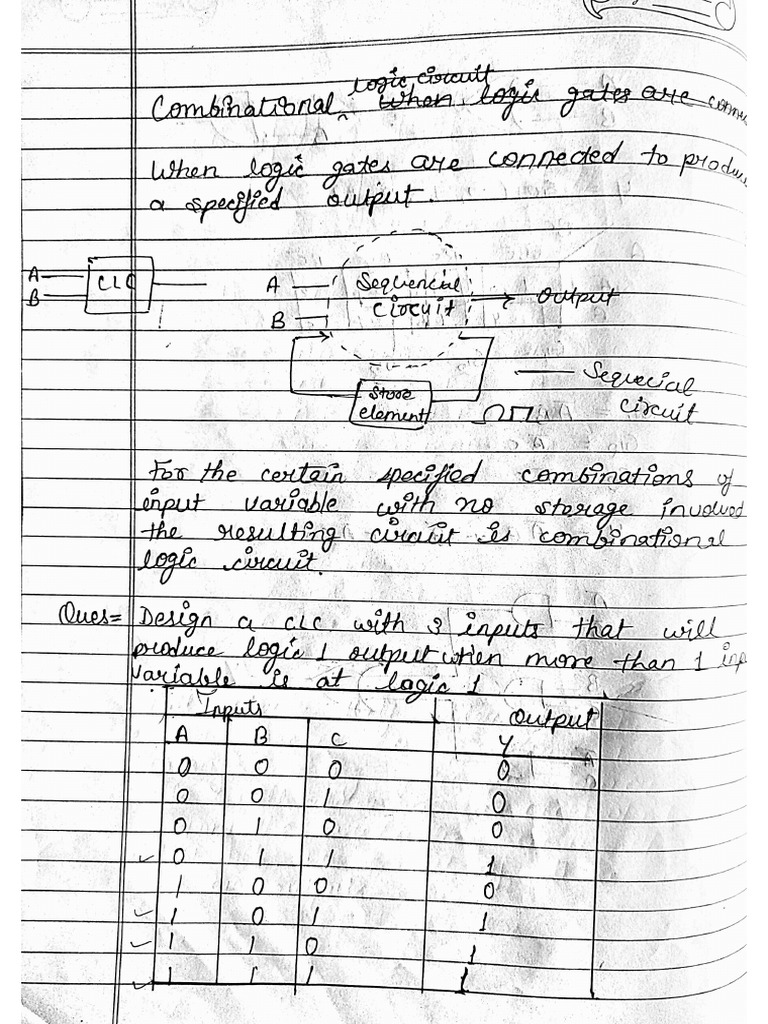 logic circuit
Combinational when logic gates are
When logic gates are connected to
a specified output.
A
B
CLC
A
B
Sequencial
circuit
output
Store
element
Sequecial
circuit
For the certain specified combinations of
input variable with no storage involved
the resulting circuit is combinational
logic circuit.
Ques= Design a CLC with 3 inputs that will
produce logic 1 output when more than 1
variable is at logic 1
Inputs Output
A B C Y
0 0 0 0
0 0 1 0
0 1 0 0
0 1 1 1
1 0 0 0
1 0 1 1
1 1 0 1
1 1 1 1